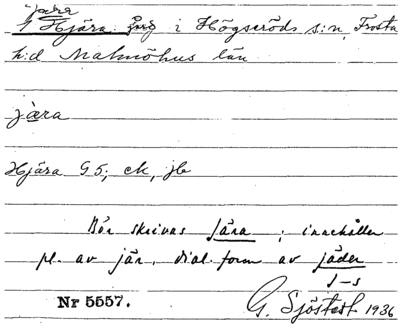 Jära
1 Hjära ång i Högseröds s:n, Frosta
h:d Malmöhus län
jära
Hjära G5; ek, jb
Bör skrivas Jära; innehåller
pl. av jär, dial. form av jäder
J-s
Nr 5557.
G. Sjöstedt 1936